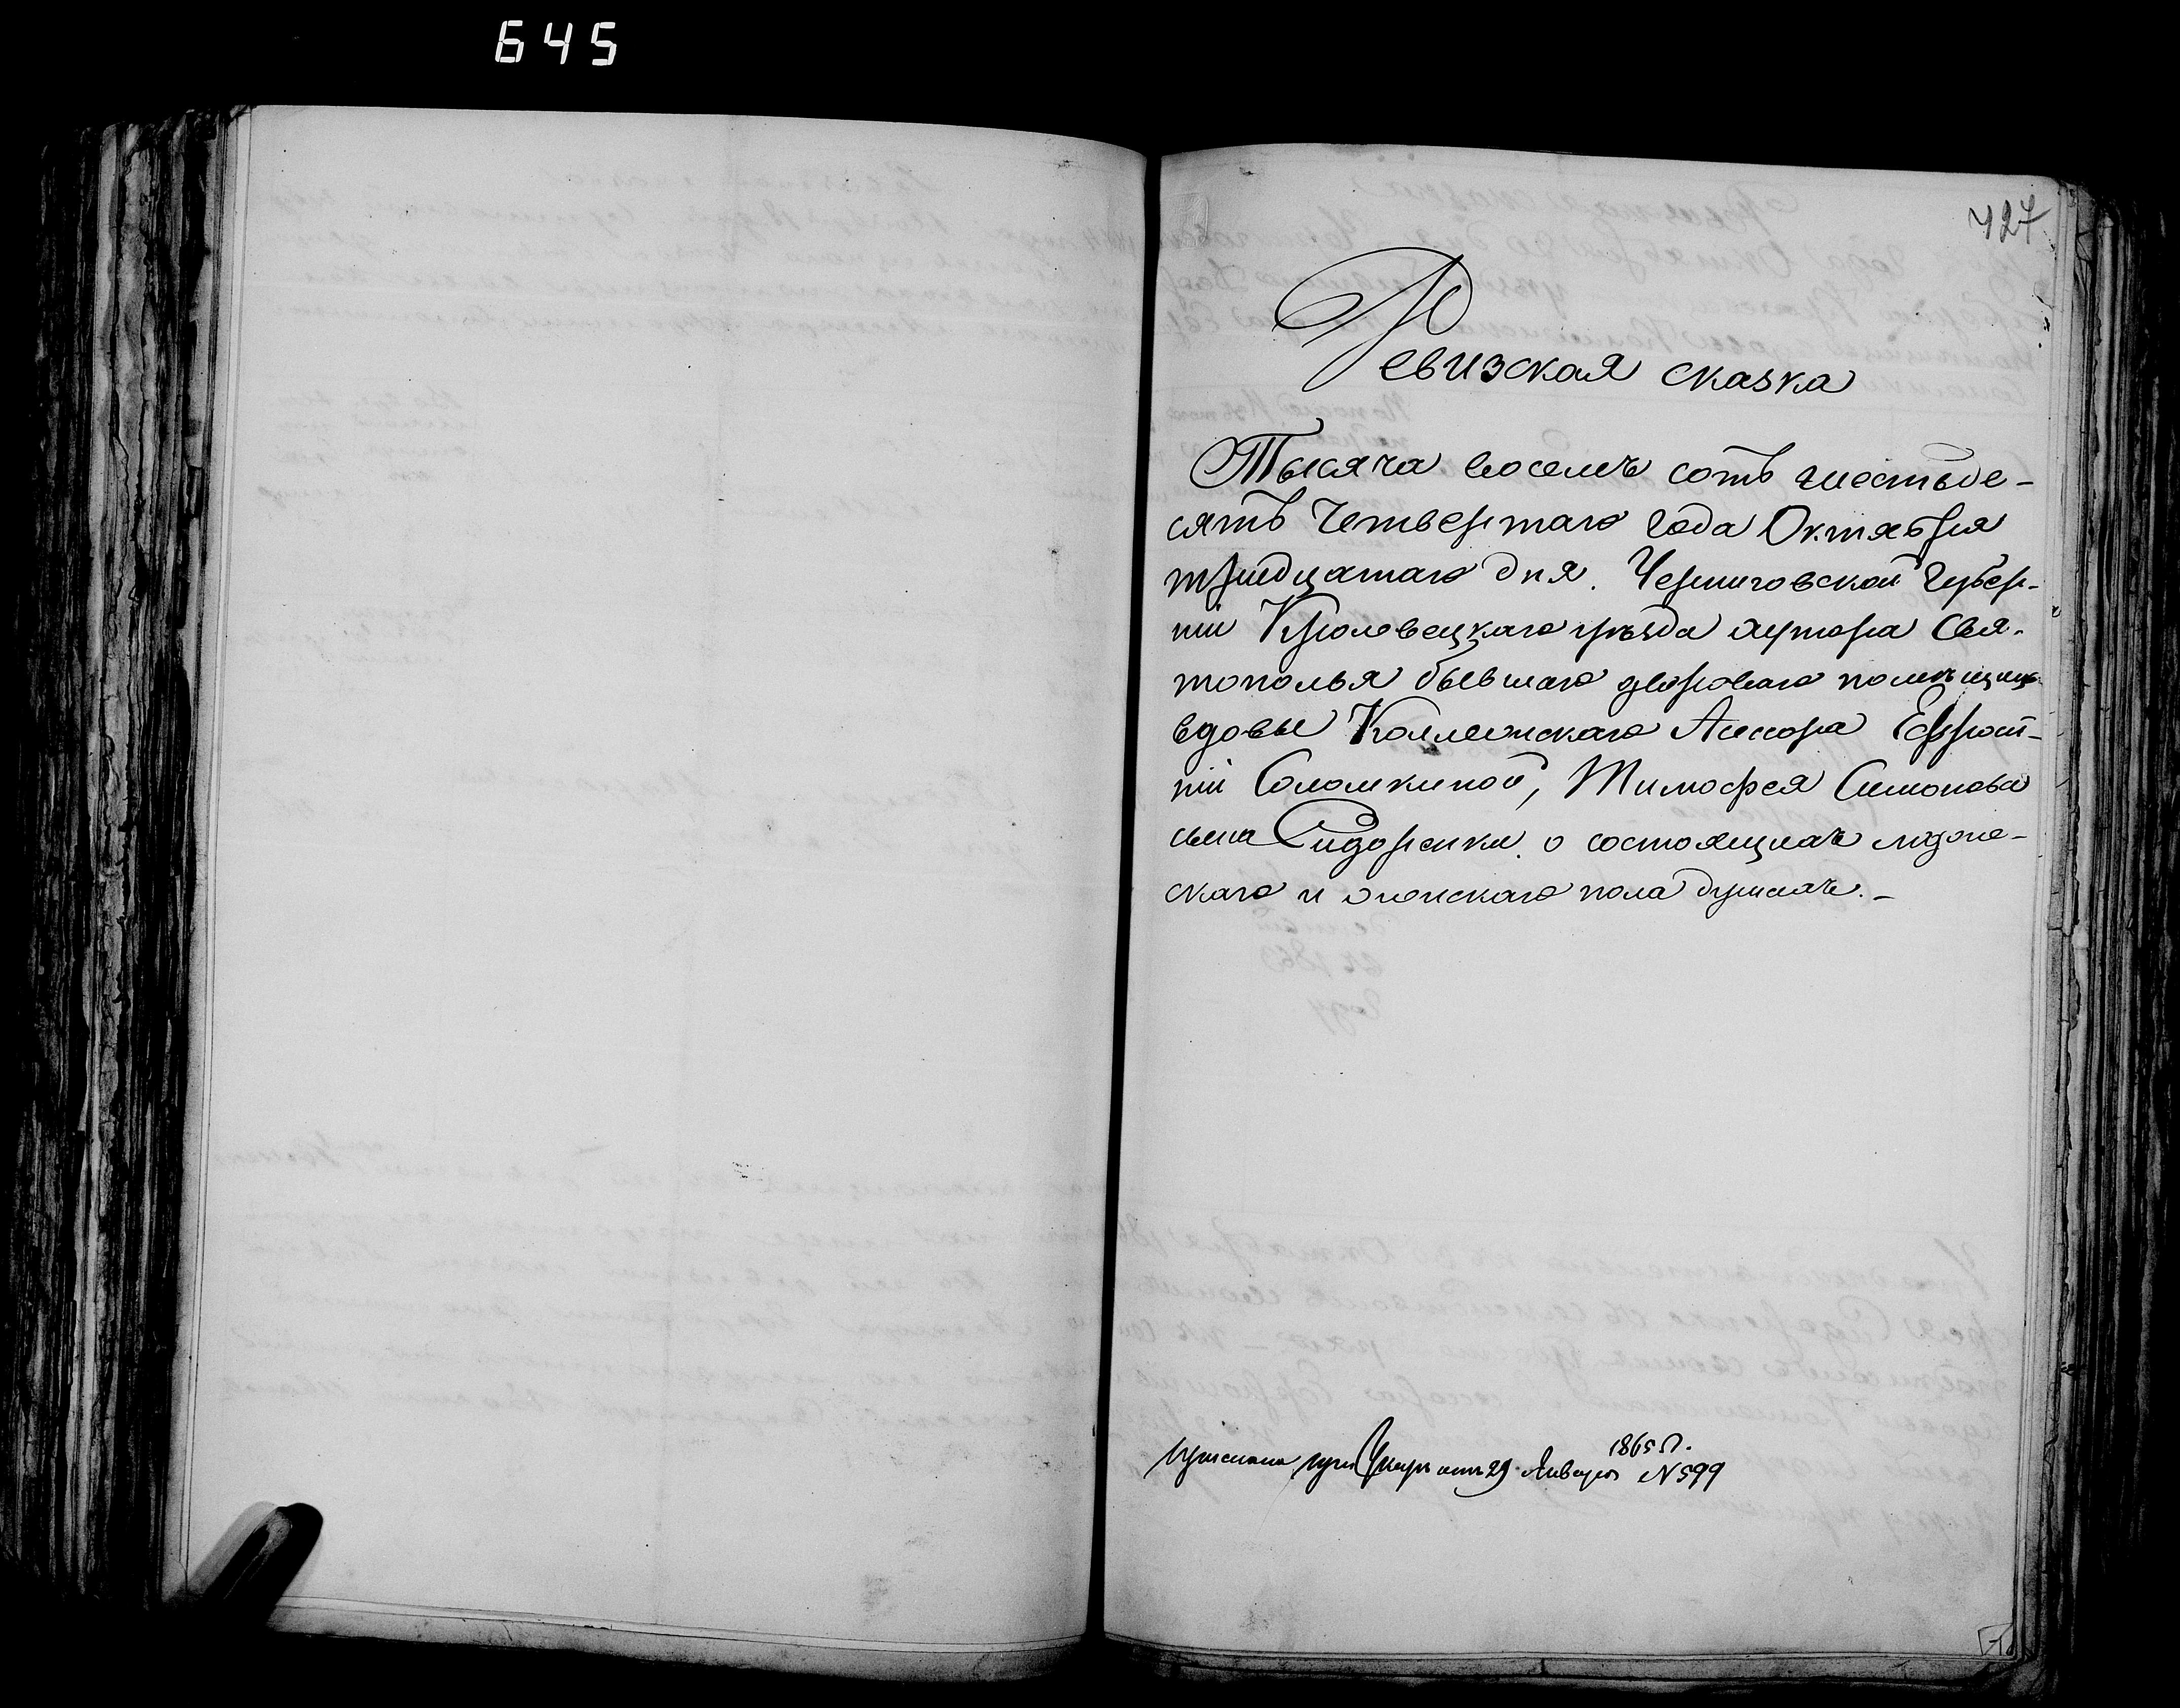 645
427
Ревизская сказка
Тысяча восемъ сотъ шестьде-
сятъ Четвертаго года Октября
тридцатаго дня. Черниговской Губер-
ніи Кролевецкаго уѣзда хутора Свя-
тополья бывшаго двороваго помѣщицы
вдовы Коллежскаго Ассесора Ефроси-
ніи Соломкиной, Тимофея Симонова
сына Сидоренки о состоящихъ мужс-
скаго и женскаго пола душахъ. -
1865 г.
при отъ 29 Января N 599